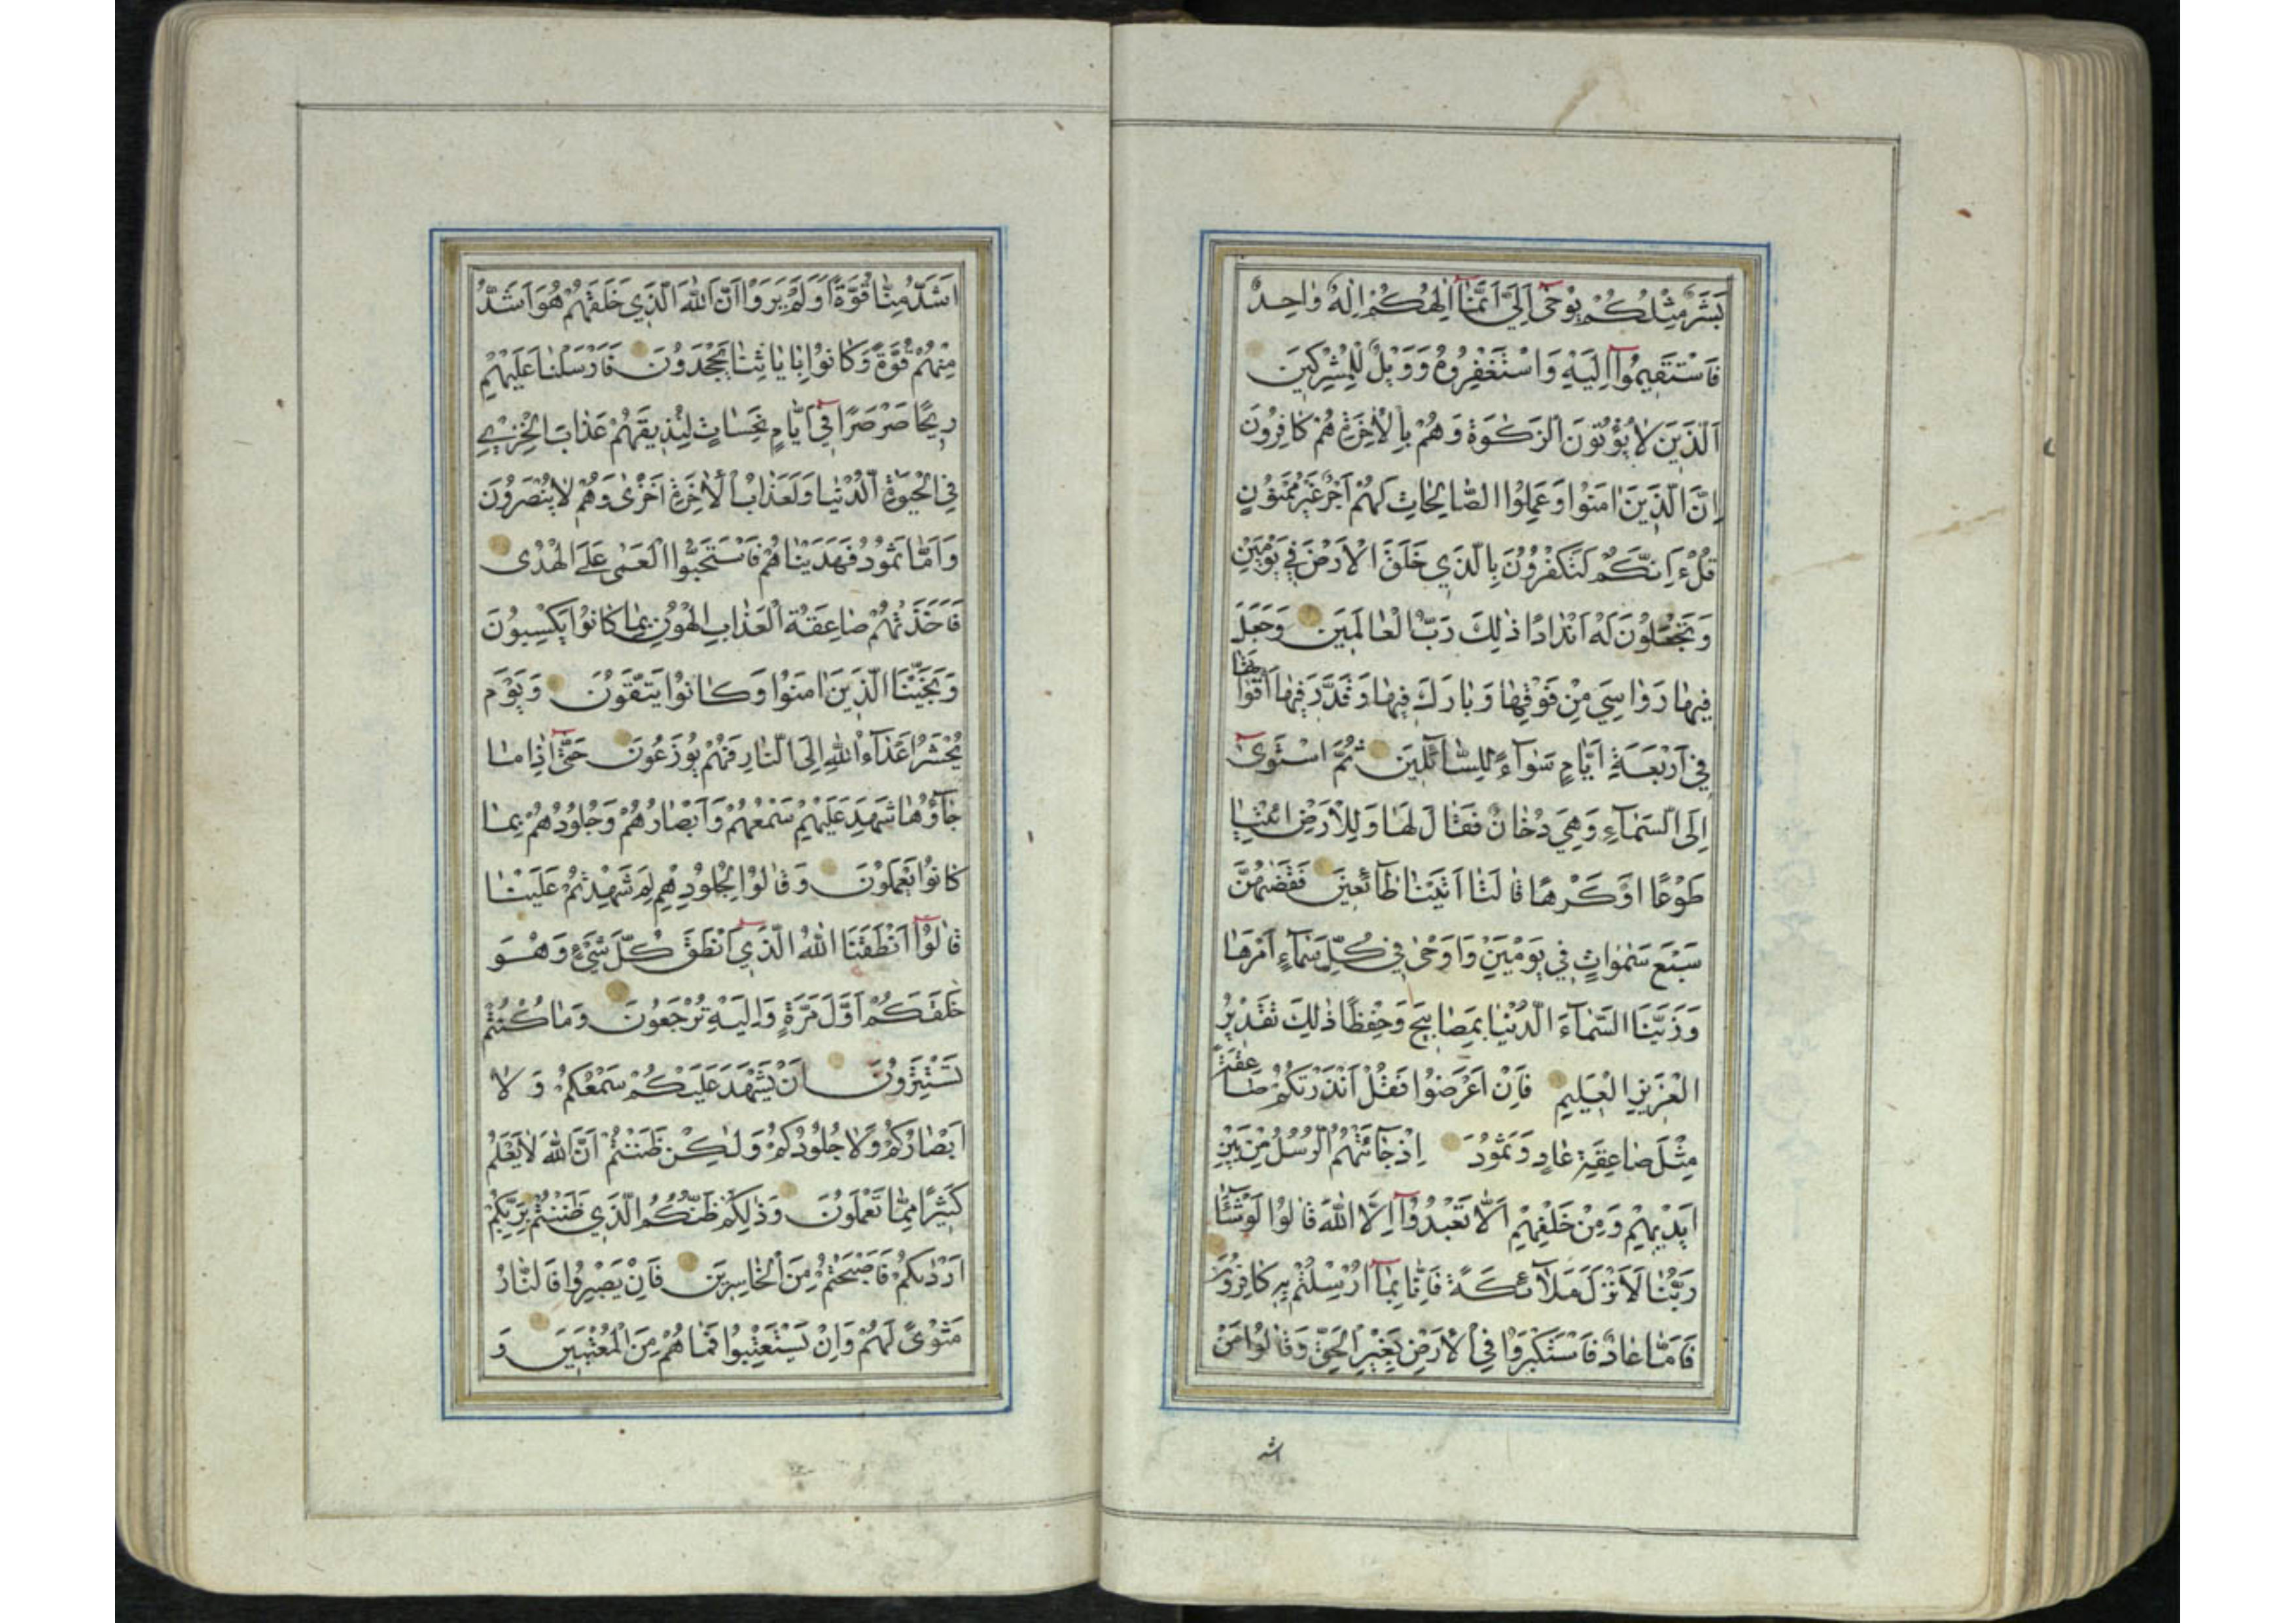 بَشَرٌ مِثْلُكُمْ يُوحٰىٓ اِلَيَّ اَنَّمٰٓا اِلٰهُكُمْ اِلٰهٌ وٰاحِدٌ
فَاسْتَقِيمُوٓا اِلَيْهِ وَاسْتَغْفِرُوهُ وَوَيْلٌ لِلْمُشْرِكِينَ
اَلَّذِينَ لٰا يُؤْتُونَ الزَّكٰوةَ وَهُمْ بِالْاٰخِرَةِ هُمْ كٰافِرُونَ
اِنَّ الَّذِينَ اٰمَنُوا وَعَمِلُوا الصّٰالِحٰاتِ لَهُمْ اَجْرٌ غَيْرُ مَمْنُونٍ
قُلْ ءَاِنَّكُمْ لَتَكْفُرُونَ بِالَّذِي خَلَقَ الْاَرْضَ فِي يَوْمَيْنِ
وَتَجْعَلُونَ لَهُ اَنْدٰادًا ذٰلِكَ رَبُّ الْعٰالَمِينَ وَجَعَلَ
فِيهٰا رَوٰاسِيَ مِنْ فَوْقِهٰا وَبٰارَكَ فِيهٰا وَقَدَّرَ فِيهٰا اَقْوٰاتَهٰا
فِي اَرْبَعَةِ اَيّٰامٍ سَوٰآءً لِلسّٰآئِلِينَ ثُمَّ اسْتَوٰىٓ
اِلَى السَّمٰآءِ وَهِيَ دُخٰانٌ فَقٰالَ لَهٰا وَلِلْاَرْضِ ائْتِيٰا
طَوْعًا اَوْ كَرْهًا قٰالَتٰا اَتَيْنٰا طٰآئِعِينَ فَقَضٰهُنَّ
سَبْعَ سَمٰوٰاتٍ فِي يَوْمَيْنِ وَاَوْحٰى فِي كُلِّ سَمٰآءٍ اَمْرَهٰا
وَزَيَّنَّا السَّمٰآءَ الدُّنْيٰا بِمَصٰابِيحَ وَحِفْظًا ذٰلِكَ تَقْدِيرُ
الْعَزِيزِ الْعَلِيمِ فَاِنْ اَعْرَضُوا فَقُلْ اَنْذَرْتُكُمْ صٰاعِقَةً
مِثْلَ صٰاعِقَةِ عٰادٍ وَثَمُودَ اِذْ جٰآءَتْهُمُ الرُّسُلُ مِنْ بَيْنِ
اَيْدِيهِمْ وَمِنْ خَلْفِهِمْ اَلّٰا تَعْبُدُوٓا اِلَّا اللّٰهَ قٰالُوا لَوْ شٰآءَ
رَبُّنٰا لَاَنْزَلَ مَلٰٓائِكَةً فَاِنّٰا بِمٰٓا اُرْسِلْتُمْ بِهِ كٰافِرُونَ
فَاَمّٰا عٰادٌ فَاسْتَكْبَرُوا فِي الْاَرْضِ بِغَيْرِ الْحَقِّ وَقٰالُوا مَنْ
اشد
اَشَدُّ مِنّٰا قُوَّةً اَوَلَمْ يَرَوْا اَنَّ اللّٰهَ الَّذِي خَلَقَهُمْ هُوَ اَشَدُّ
مِنْهُمْ قُوَّةً وَكٰانُوا بِاٰيٰاتِنٰا يَجْحَدُونَ فَاَرْسَلْنٰا عَلَيْهِمْ
رِيحًا صَرْصَرًا فِٓي اَيّٰامٍ نَحِسٰاتٍ لِنُذِيقَهُمْ عَذٰابَ الْخِزْيِ
فِي الْحَيٰوةِ الدُّنْيٰا وَلَعَذٰابُ الْاٰخِرَةِ اَخْزٰى وَهُمْ لٰا يُنْصَرُونَ
وَاَمّٰا ثَمُودُ فَهَدَيْنٰاهُمْ فَاسْتَحَبُّوا الْعَمٰى عَلَى الْهُدٰى
فَاَخَذَتْهُمْ صٰاعِقَةُ الْعَذٰابِ الْهُونِ بِمٰا كٰانُوا يَكْسِبُونَ
وَنَجَّيْنَا الَّذِينَ اٰمَنُوا وَكٰانُوا يَتَّقُونَ وَيَوْمَ
يُحْشَرُ اَعْدٰآءُ اللّٰهِ اِلَى النّٰارِ فَهُمْ يُوزَعُونَ حَتّٰىٓ اِذٰا مٰا
جٰآؤُهٰا شَهِدَ عَلَيْهِمْ سَمْعُهُمْ وَاَبْصٰارُهُمْ وَجُلُودُهُمْ بِمٰا
كٰانُوا يَعْمَلُونَ وَقٰالُوا لِجُلُودِهِمْ لِمَ شَهِدْتُمْ عَلَيْنٰا
قٰالُوٓا اَنْطَقَنَا اللّٰهُ الَّذِٓي اَنْطَقَ كُلَّ شَيْءٍ وَهُوَ
خَلَقَكُمْ اَوَّلَ مَرَّةٍ وَاِلَيْهِ تُرْجَعُونَ وَمٰا كُنْتُمْ
تَسْتَتِرُونَ اَنْ يَشْهَدَ عَلَيْكُمْ سَمْعُكُمْ وَ لٰا
اَبْصٰارُكُمْ وَلٰا جُلُودُكُمْ وَلٰكِنْ ظَنَنْتُمْ اَنَّ اللّٰهَ لٰا يَعْلَمُ
كَثِيرًا مِمّٰا تَعْمَلُونَ وَذٰلِكُمْ ظَنُّكُمُ الَّذِي ظَنَنْتُمْ بِرَبِّكُمْ
اَرْدٰىكُمْ فَاَصْبَحْتُمْ مِنَ الْخٰاسِرِينَ فَاِنْ يَصْبِرُوا فَالنّٰارُ
مَثْوًى لَهُمْ وَاِنْ يَسْتَعْتِبُوا فَمٰا هُمْ مِنَ الْمُعْتَبِينَ وَ